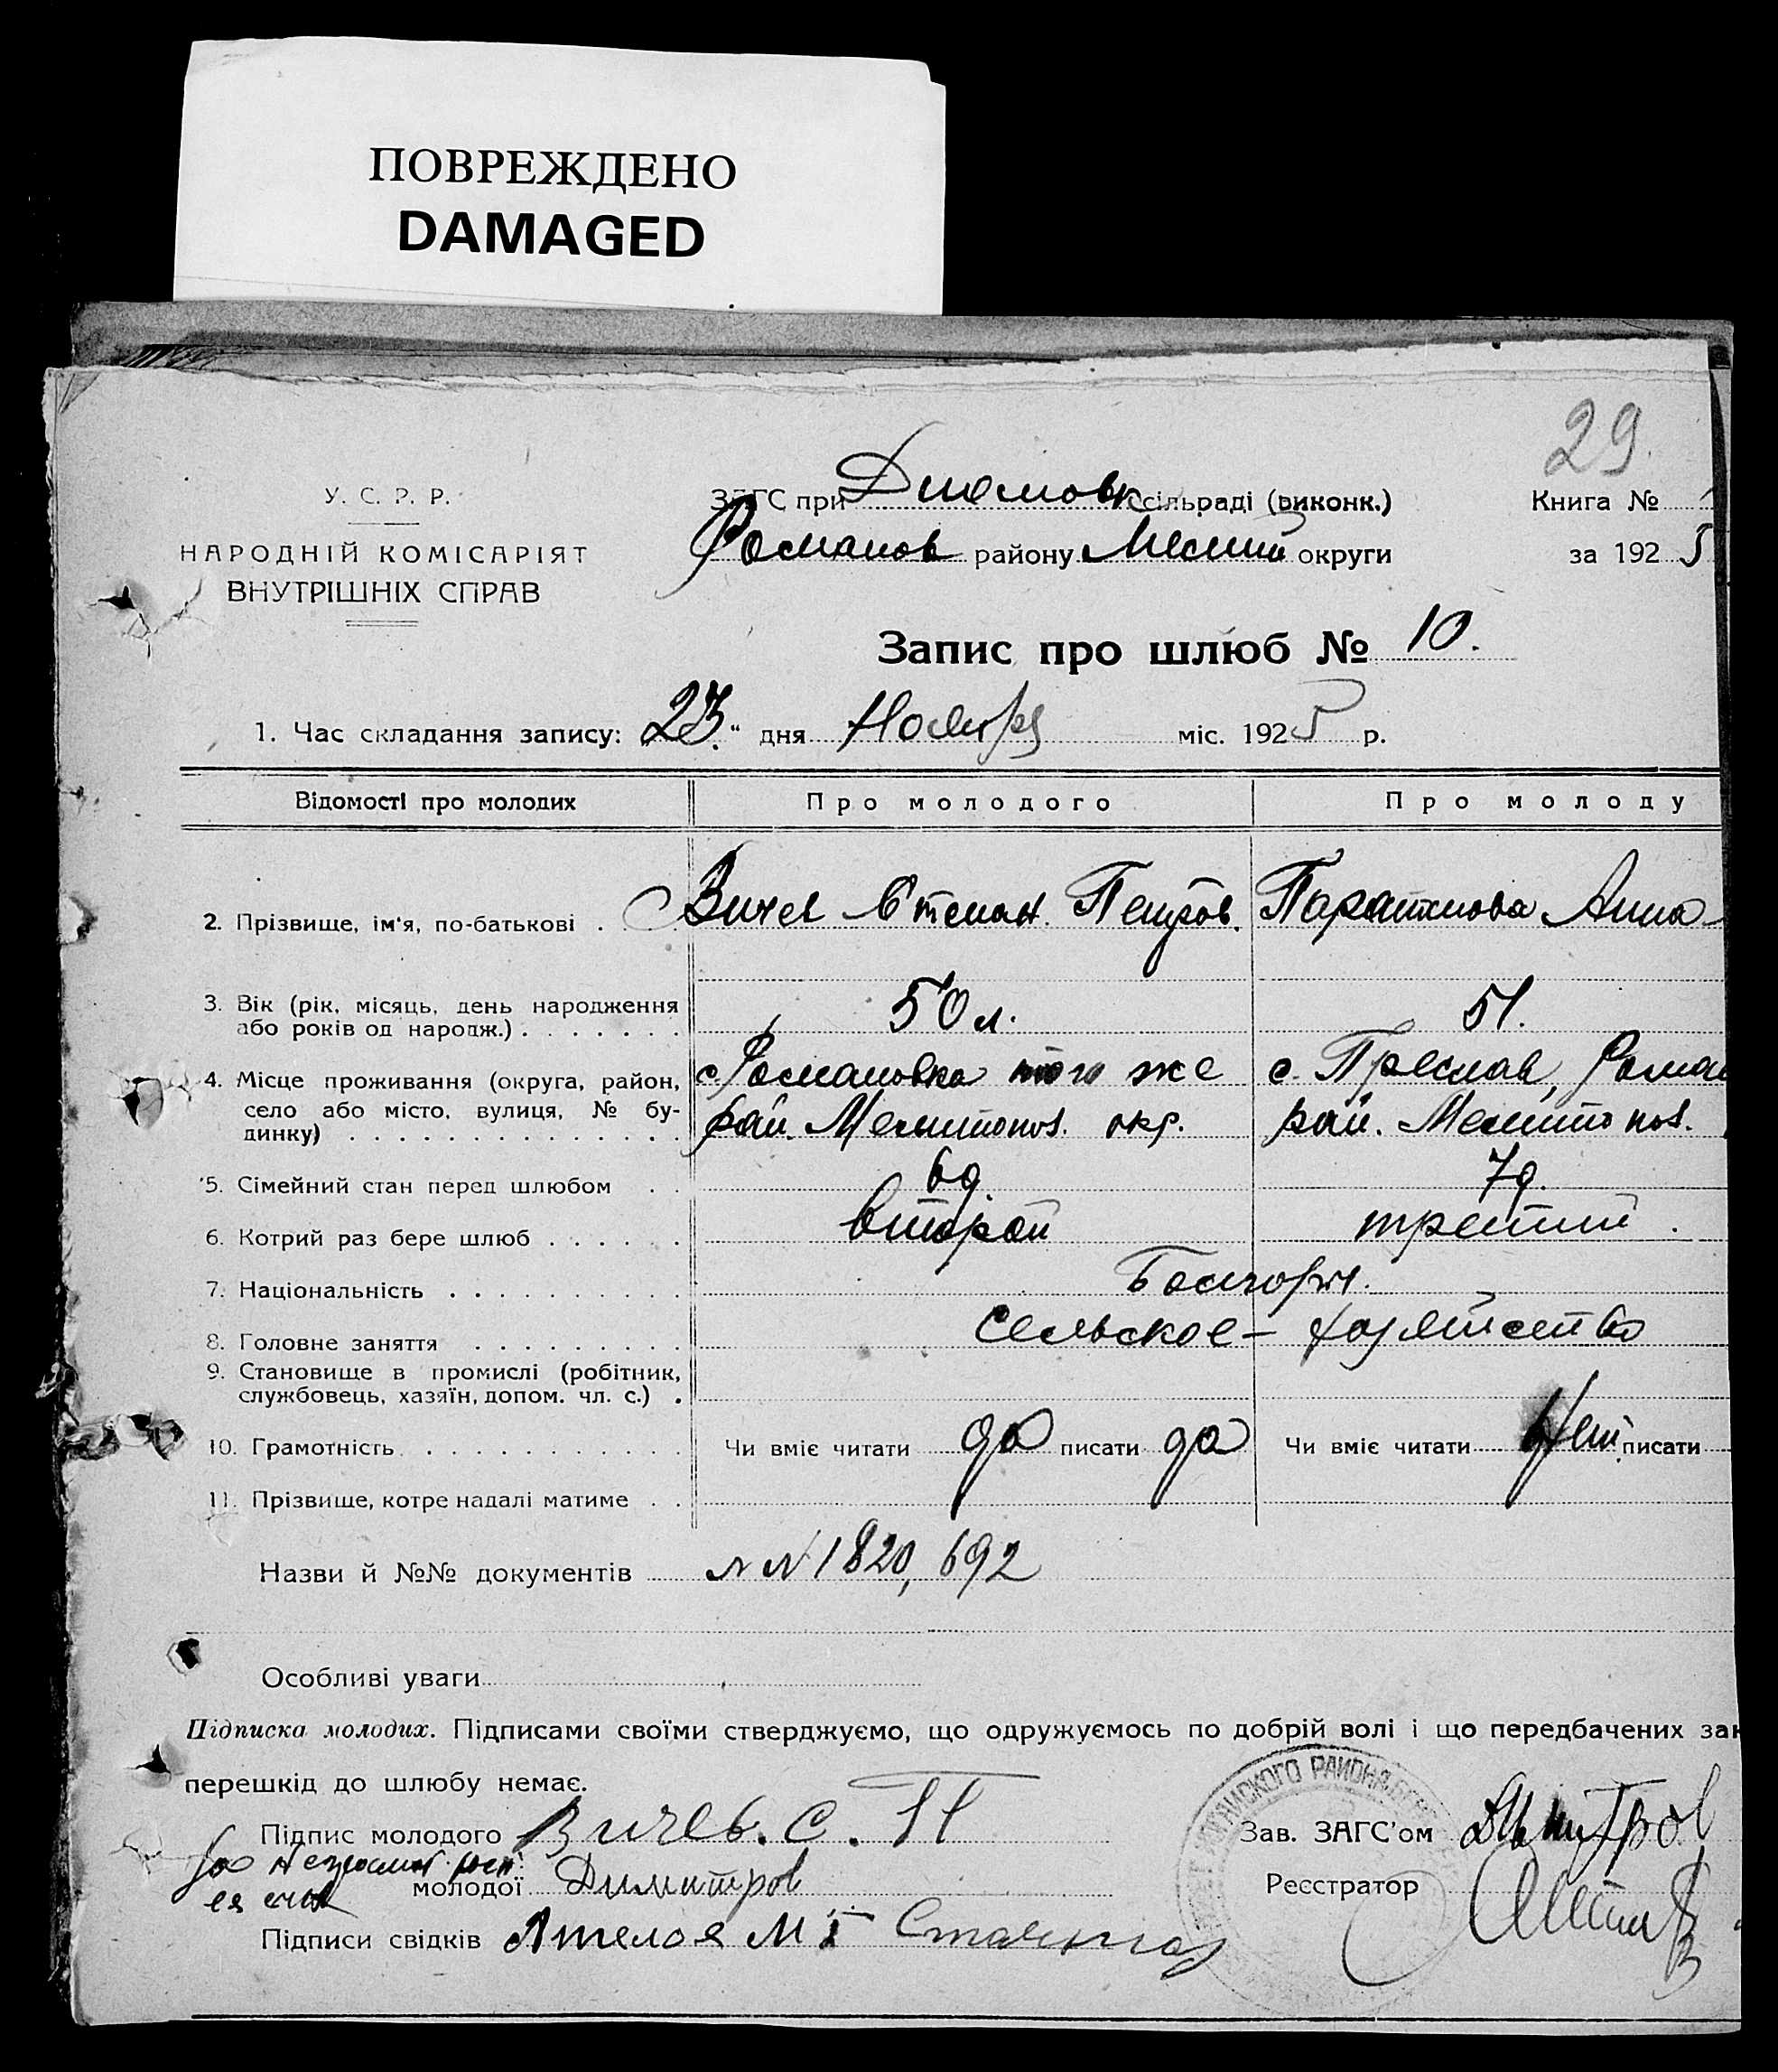 ПОВРЕЖДЕНО
DAMAGED
29.
У. С. Р. Р.
НАРОДНІЙ КОМІСАРІЯТ
ВНУТРІШНІХ СПРАВ
ЗАГС при сільраді (виконк.)
Романов району Мелит округи
Книга №
за 192 5
Запис про шлюб № 10.
1. Час складання запису: „23.“ дня Ноября міс. 192 5 р.
Відомості про молодих Про молодого Про молоду
2. Прізвище, ім'я, по-батькові . Вичев Степан. Петров. Анна
3. Вік (рік, місяць, день народження
або років од народж.) . . . . . . . 50 л. 51.
4. Місце проживання (округа, район, с. Романовка того же с. Преслав, Роман
село або місто, вулиця, № бу- рай. Мелитопол. окр. рай. Мелитопол.
динку) . . . . . . . . . . . . . .
5. Сімейний стан перед шлюбом . . 6д. 7д.
6. Котрий раз бере шлюб . . . . . . второй третий .
7. Національність . . . . . . . . . . Болгоры.
8. Головне заняття . . . . . . . . . сельское – хозяйство
9. Становище в промислі (робітник,
службовець, хазяїн, допом. чл. с.) .
10. Грамотність . . . . . . . . . . . Чи вміє читати да писати да Чи вміє читати нет писати
11. Прізвище, котре надалі матиме . .
Назви й №№ документів N N 1820, 692
Особливі уваги
Підписка молодих. Підписами своїми стверджуємо, що одружуємось по добрій волі і що передбачених зак
перешкід до шлюбу немає.
Підпис молодого Вичев. С. П
За неграмот.
молодої Димитров
Підписи свідків
Зав. ЗАГС'ом Димитров
Реєстратор
РАЙОНА